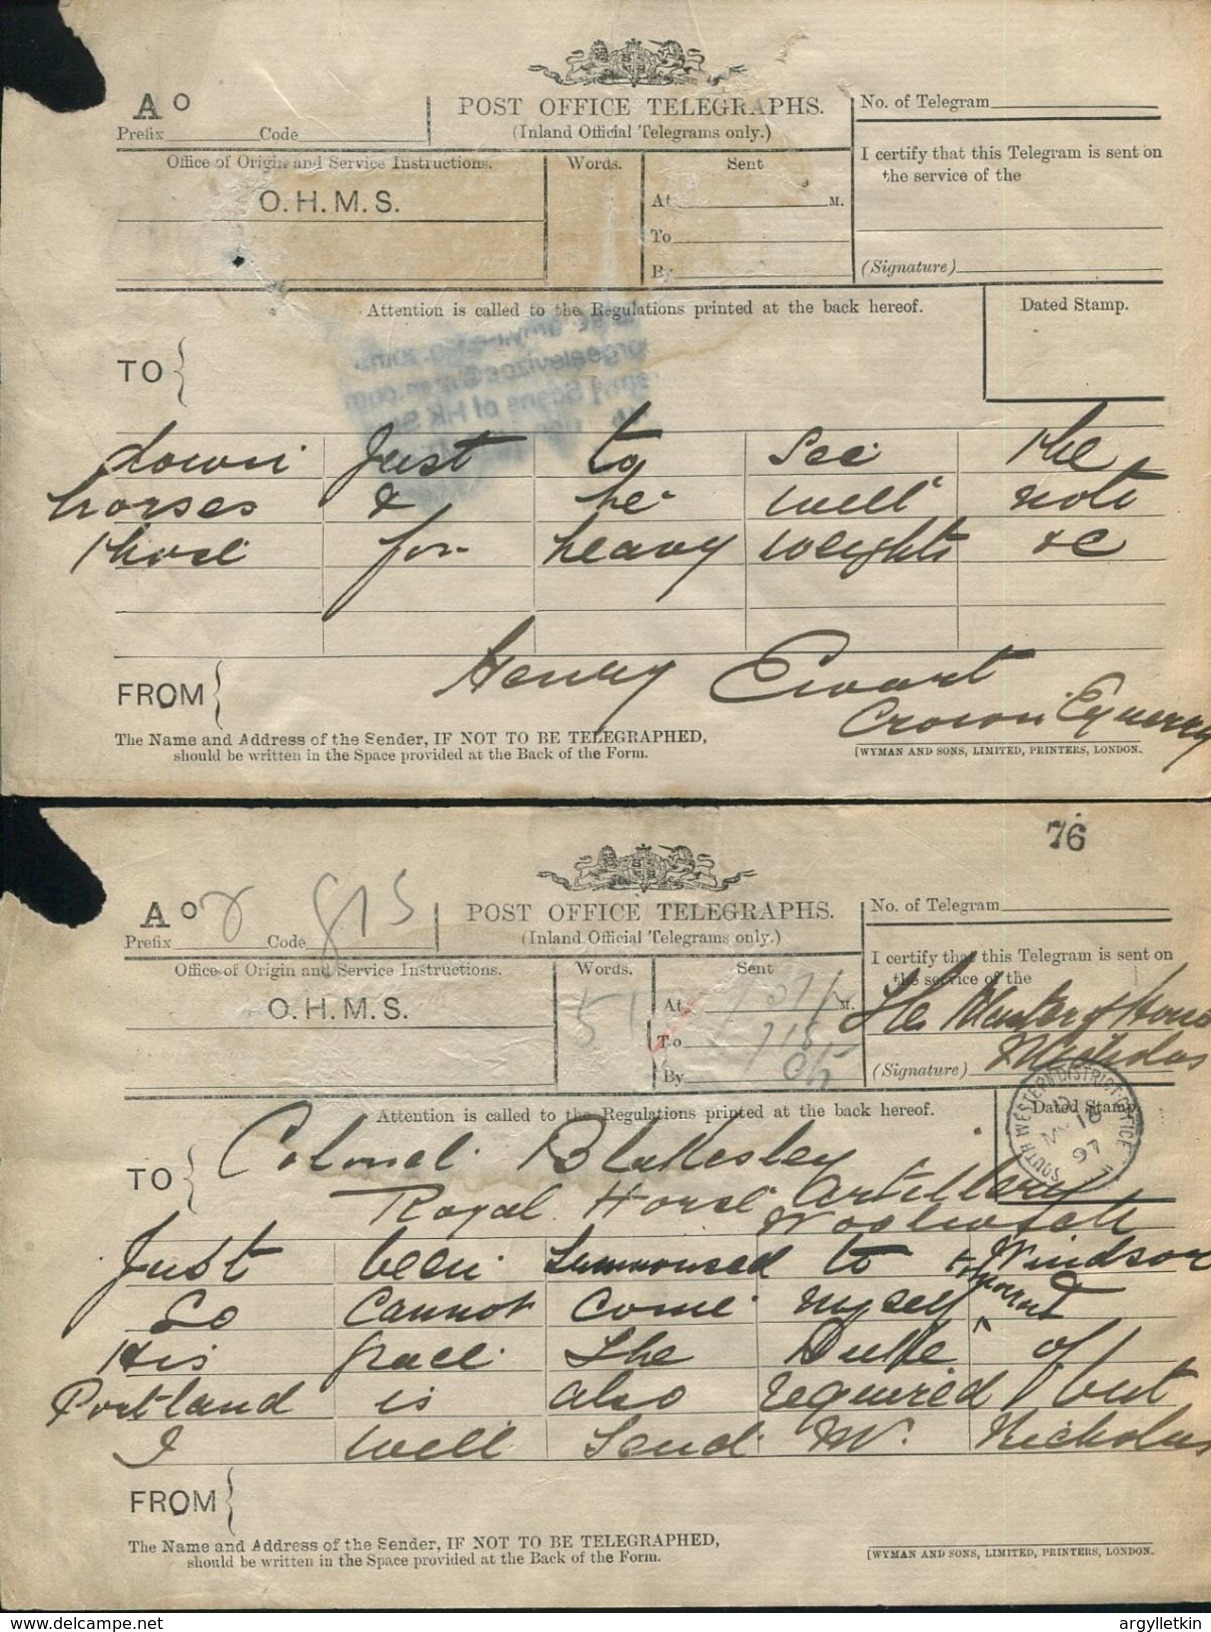 A O
POST OFFICE TELEGRAPHS.
(Inland Official Telegrams only.)
No. of Telegram
Prefix Code
Office of Origin and Service Instructions.
O.H.M.S.
Words.
Sent
At M.
To
By
I certify that this Telegram is sent on
the service of the
(Signature)
Attention is called to the Regulations printed at the back hereof.
Dated Stamp.
TO
down just to see the
horses & he will note
those for heavy weights &c
FROM
Henry Ewart
Crown Equerry
The Name and Address of the Sender, IF NOT TO BE TELEGRAPHED,
should be written in the Space provided at the Back of the Form.
[WYMAN AND SONS, LIMITED, PRINTERS, LONDON.
76
A O
POST OFFICE TELEGRAPHS.
(Inland Official Telegrams only.)
No. of Telegram
Prefix Code
Office of Origin and Service Instructions.
O.H.M.S.
Words.
51
Sent
At M.
To
By
I certify that this Telegram is sent on
the service of the
The Master of Horse
(Signature) Nicholas
Attention is called to the Regulations printed at the back hereof.
Dated Stamp.
SOUTH WESTERN DISTRICT OFFICE
MY 18
97
TO
Colonel Blakesley
Royal Horse Artillery
Woolwich
Just been summoned to Windsor
So cannot come myself
His Grace The Duke of
Portland is also required but
I will send Mr. Nicholas
FROM
The Name and Address of the Sender, IF NOT TO BE TELEGRAPHED,
should be written in the Space provided at the Back of the Form.
[WYMAN AND SONS, LIMITED, PRINTERS, LONDON.
argylletkin